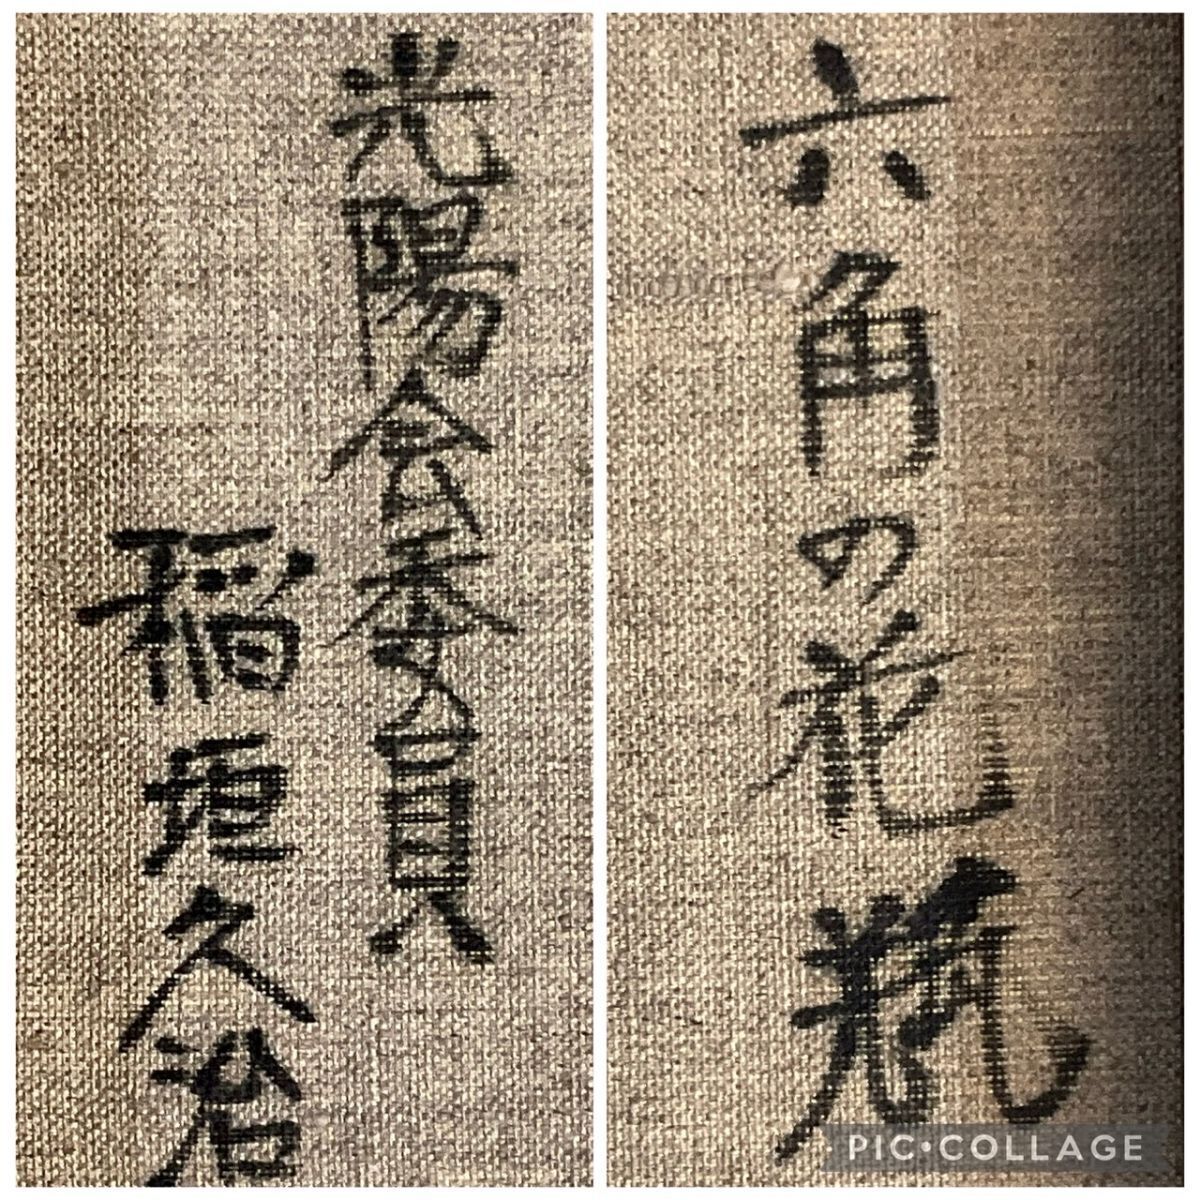 光陽会委員
稲垣久治
六角の花瓶
PIC•COLLAGE